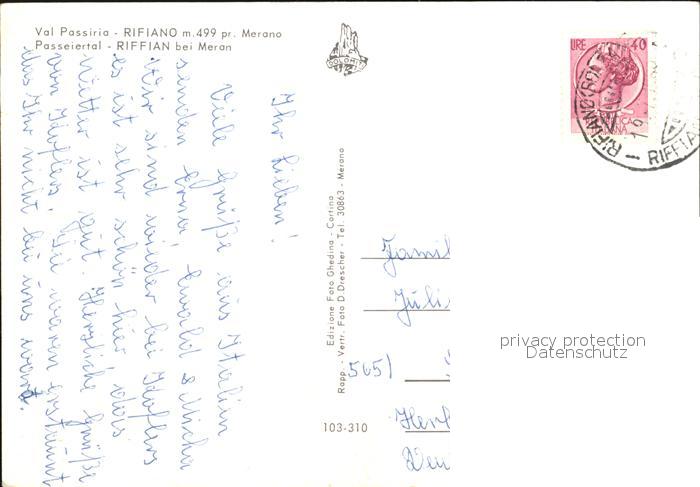 Val Passiria - RIFIANO m.499 pr. Merano
Passeiertal - RIFFIAN bei Meran
DOLOMITI
LIRE 40
RIFIANO (BZ)
RIFFIA
Ihr Lieben!
Viele Grüße aus Italien
senden Erna, Ewald & Micha
Wir sind wieder bei Idoflers
es ist sehr schön hier, das
Wetter ist gut. Herzliche Grüße
von Idoflers. Sie waren erstaunt
das Ihr nicht bei uns wart.
Edizione Foto Ghedina - Cortina
Rapp - Vertr. Foto D.Drescher - Tel. 30863 - Merano
103-310
Famil
Jüli
5651
Herl
privacy protection
Datenschutz